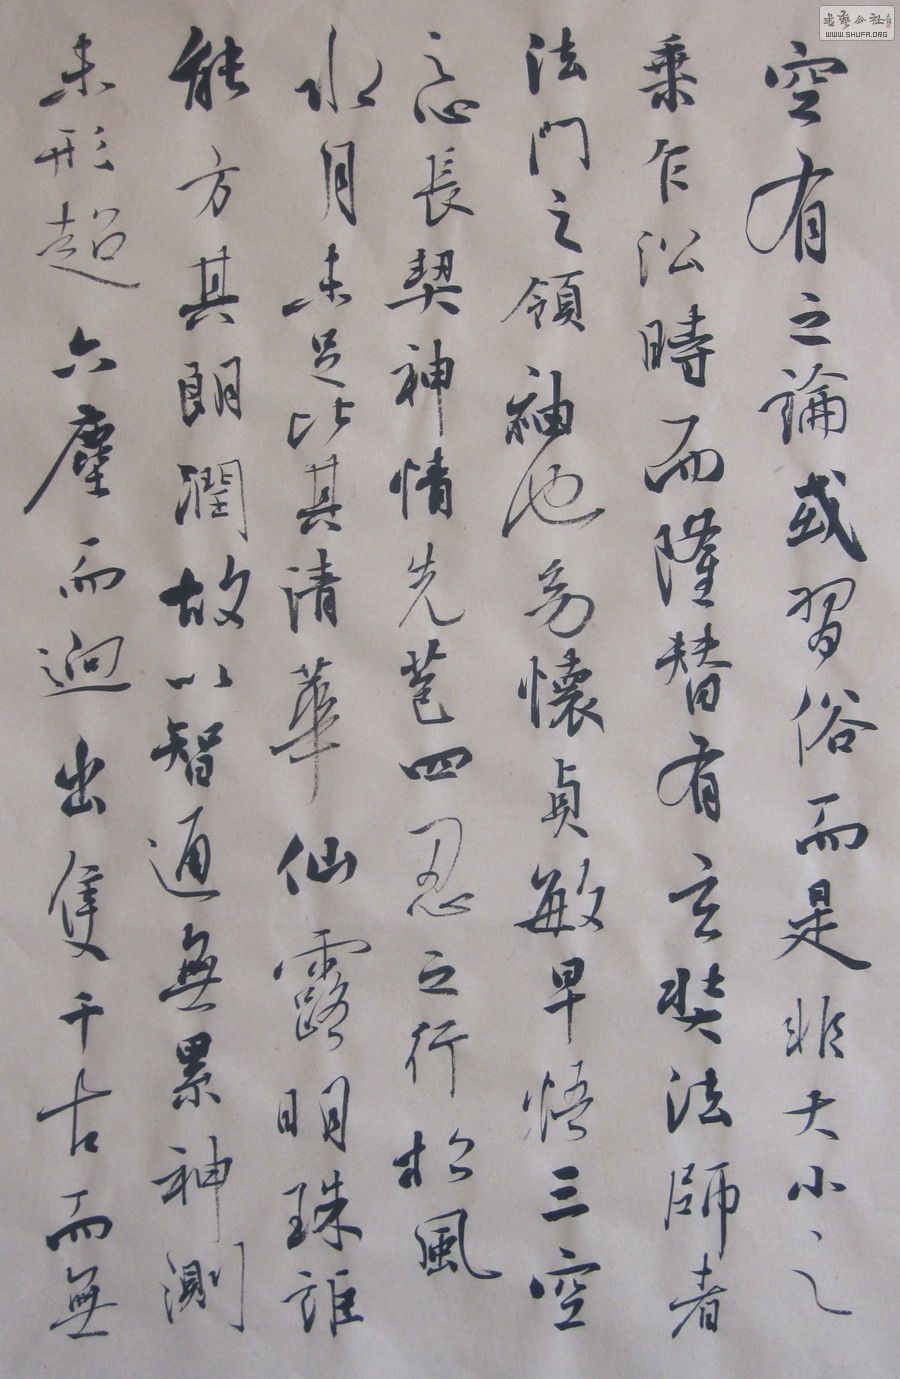 空有之論或習俗而是非大小之
乘乍沿時而隆替有玄奘法師者
法門之領袖也幼懷貞敏早悟三空
之心長契神情先苞四忍之行松風
水月未足比其清華仙露明珠詎
能方其朗潤故以智通無累神測
未形超六塵而迥出隻千古而無
書藝公社
WWW.SHUFA.ORG